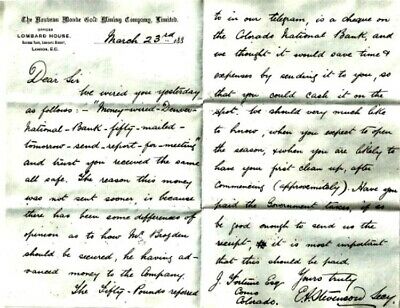 The Nouveau Monde Gold Mining Company, Limited.
OFFICES
LOMBARD HOUSE,
GEORGE YARD, LOMBARD STREET,
LONDON, E.C.
March 23rd 188
Dear Sir
We wired you yesterday
as follows:- "Money-wired-Denver-
National-Bank-fifty-mailed-
tomorrow-send-report-for-meeting"
and trust you received the same
all safe. The reason this money
was not sent sooner, is because
there has been some differences of
opinion as to how Mr. Brogden
should be secured, he having ad-
vanced money to the Company.
The Fifty-Pounds referred
to in our telegram, is a cheque on
the Colorado National Bank, and
we thought it would save time &
expenses by sending it to you, so
that you could cash it on the
spot. We should very much like
to know, when you expect to open
the season, & when you are likely to
have your first clean up, after
commencing (approximately). Have you
paid the Government taxes, if so
be good enough to send us the
receipt, it is most important
that this should be paid.
Yours truly
J. Fortune Esq
Como
Colorado.
E. A. Stevenson Secy.